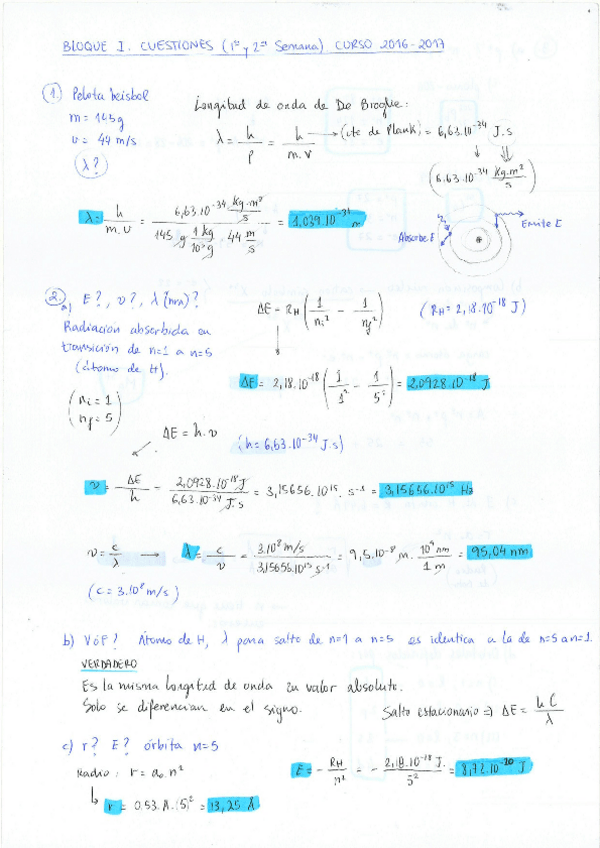 BLOQUE I. CUESTIONES (1ª y 2ª Semana) CURSO 2016-2017
1. Pelota beisbol
m = 145 g
v = 44 m/s
λ?
Longitud de onda de De Broglie:
λ = h / p = h / m.v → (cte de Plank) = 6,63.10⁻³⁴ J.s
(6.63.10⁻³⁴ kg.m² / s)
λ = h / m.v = 6,63.10⁻³⁴ kg.m²/s / 145 g 1 kg / 10³ g . 44 m/s = 1,039.10⁻³⁴ m
Absorbe E
Emite E
2. a) E?, υ?, λ (nm)?
Radiación absorbida en
transición de n=1 a n=5
(átomo de H).
(ni = 1
nf = 5)
ΔE = RH (1/ni² - 1/nf²) (RH = 2,18.10⁻¹⁸ J)
ΔE = 2,18.10⁻¹⁸ (1/1² - 1/5²) = 2,0928.10⁻¹⁸ J
ΔE = h.υ (h = 6,63.10⁻³⁴ J.s)
υ = ΔE / h = 2,0928.10⁻¹⁸ J / 6,63.10⁻³⁴ J.s = 3,15656.10¹⁵ s⁻¹ = 3,15656.10¹⁵ Hz
υ = c / λ → λ = c / υ = 3.10⁸ m/s / 3,15656.10¹⁵ s⁻¹ = 9,5.10⁻⁸ m . 10⁹ nm / 1 m = 95,04 nm
(c = 3.10⁸ m/s)
b) V ó F? Átomo de H, λ para salto de n=1 a n=5 es identica a la de n=5 a n=1.
VERDADERO
Es la misma longitud de onda en valor absoluto.
Solo se diferencian en el signo.
Salto estacionario ⇒ ΔE = h C / λ
c) r? E? órbita n=5
Radio: r = a₀.n²
r = 0.53 Å.(5)² = 13,25 Å
E = - RH / n² = - 2,18.10⁻¹⁸ J. / 5² = 8,72.10⁻²⁰ J